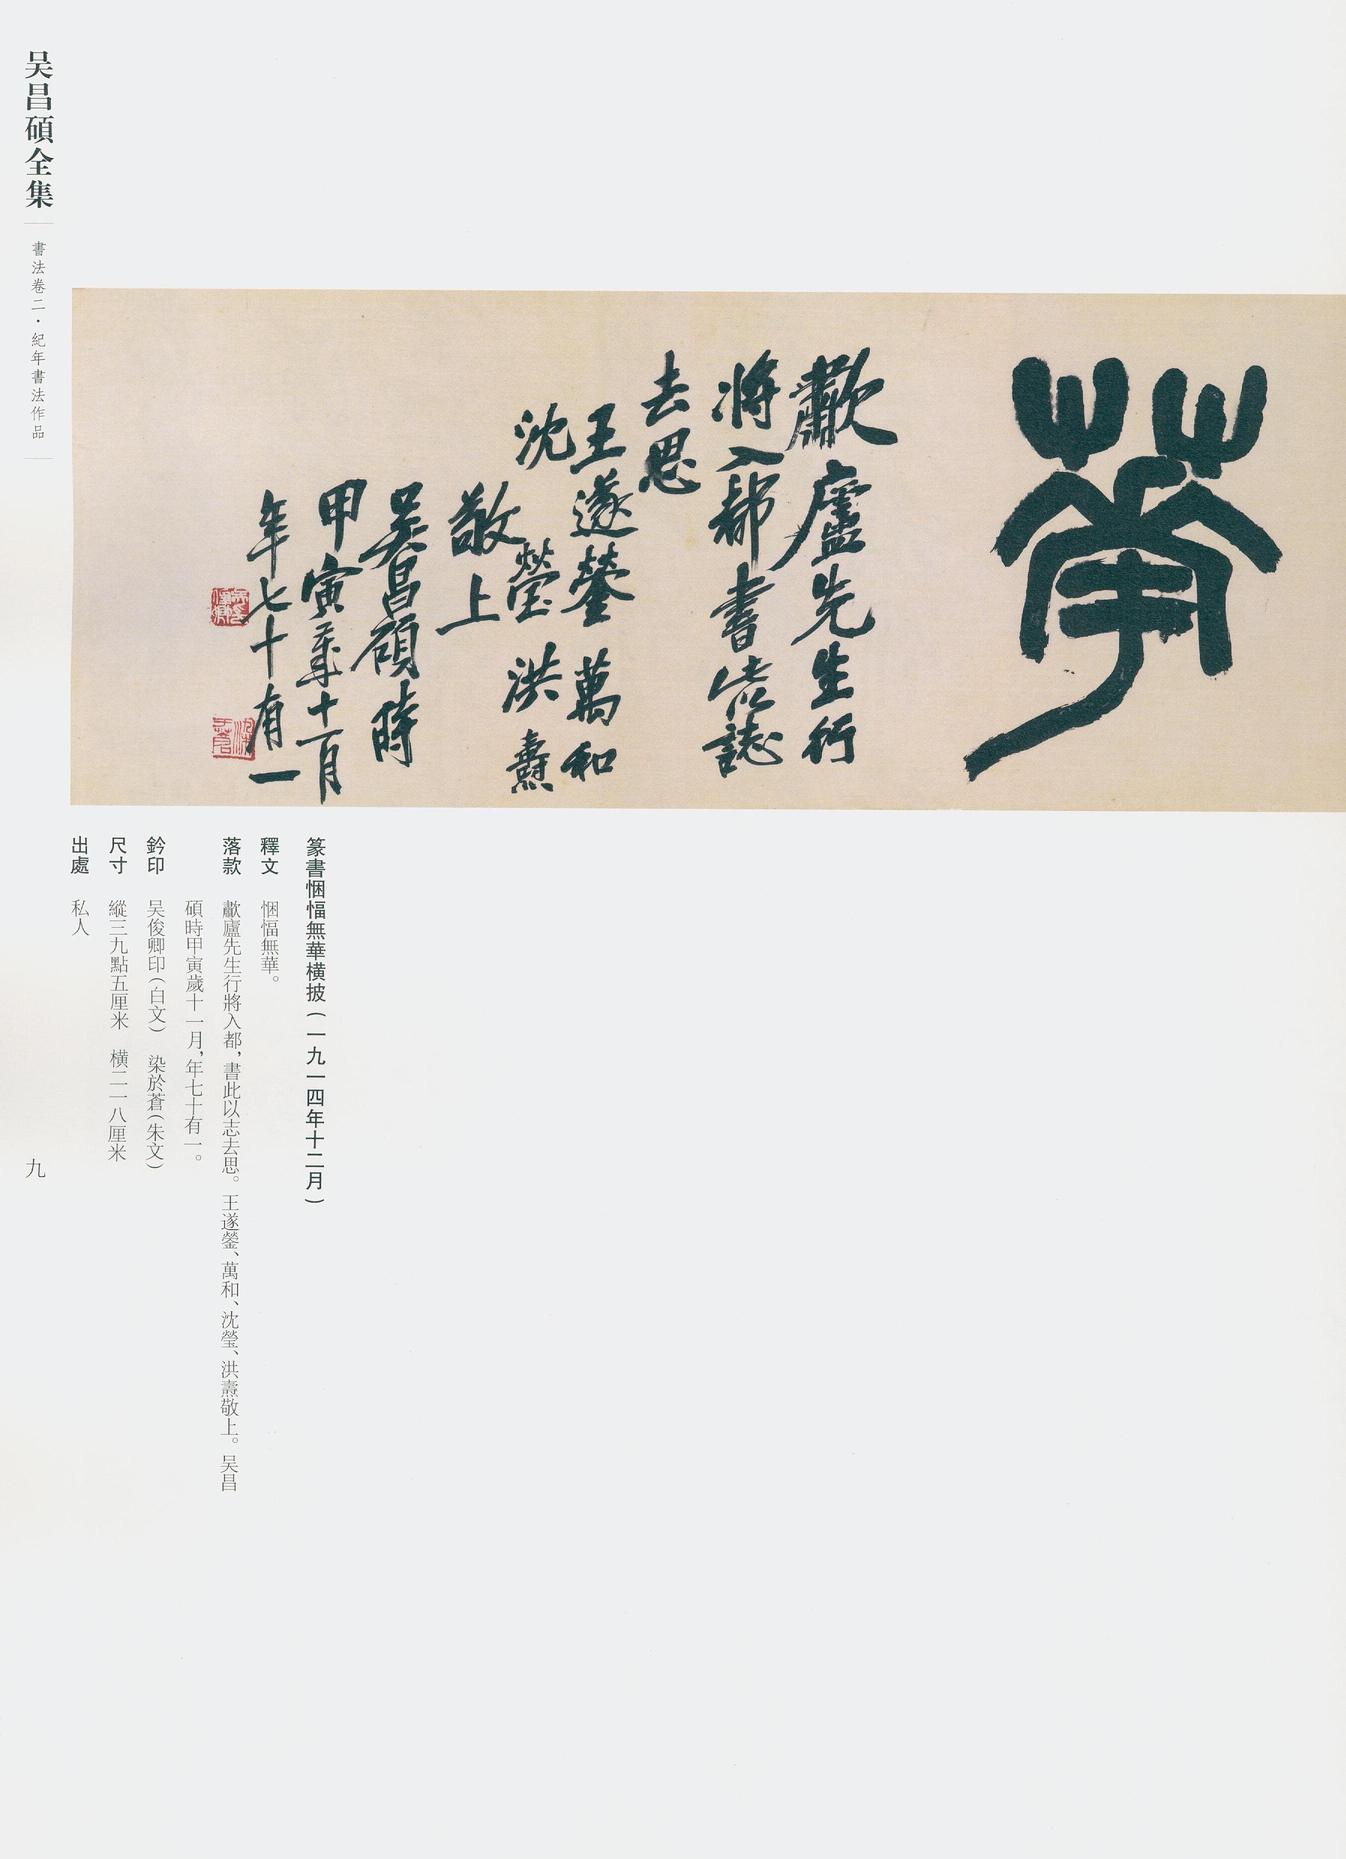 華
歗廬先生行
將入都書此誌
去思
王遂鎣萬和
沈瑩洪燾
敬上
吴昌碩時
甲寅歲十一月
年七十有一
篆書悃愊無華横披(一九一四年十二月)
釋文 悃愊無華。
落款 歗廬先生行將入都,書此以志去思。王遂鎣、萬和、沈瑩、洪燾敬上。吴昌
碩時甲寅歲十一月,年七十有一。
鈐印 吴俊卿印(白文) 染於蒼(朱文)
尺寸 縱三九點五厘米 横二一八厘米
出處 私人
吴昌碩全集
書法卷二·紀年書法作品
九